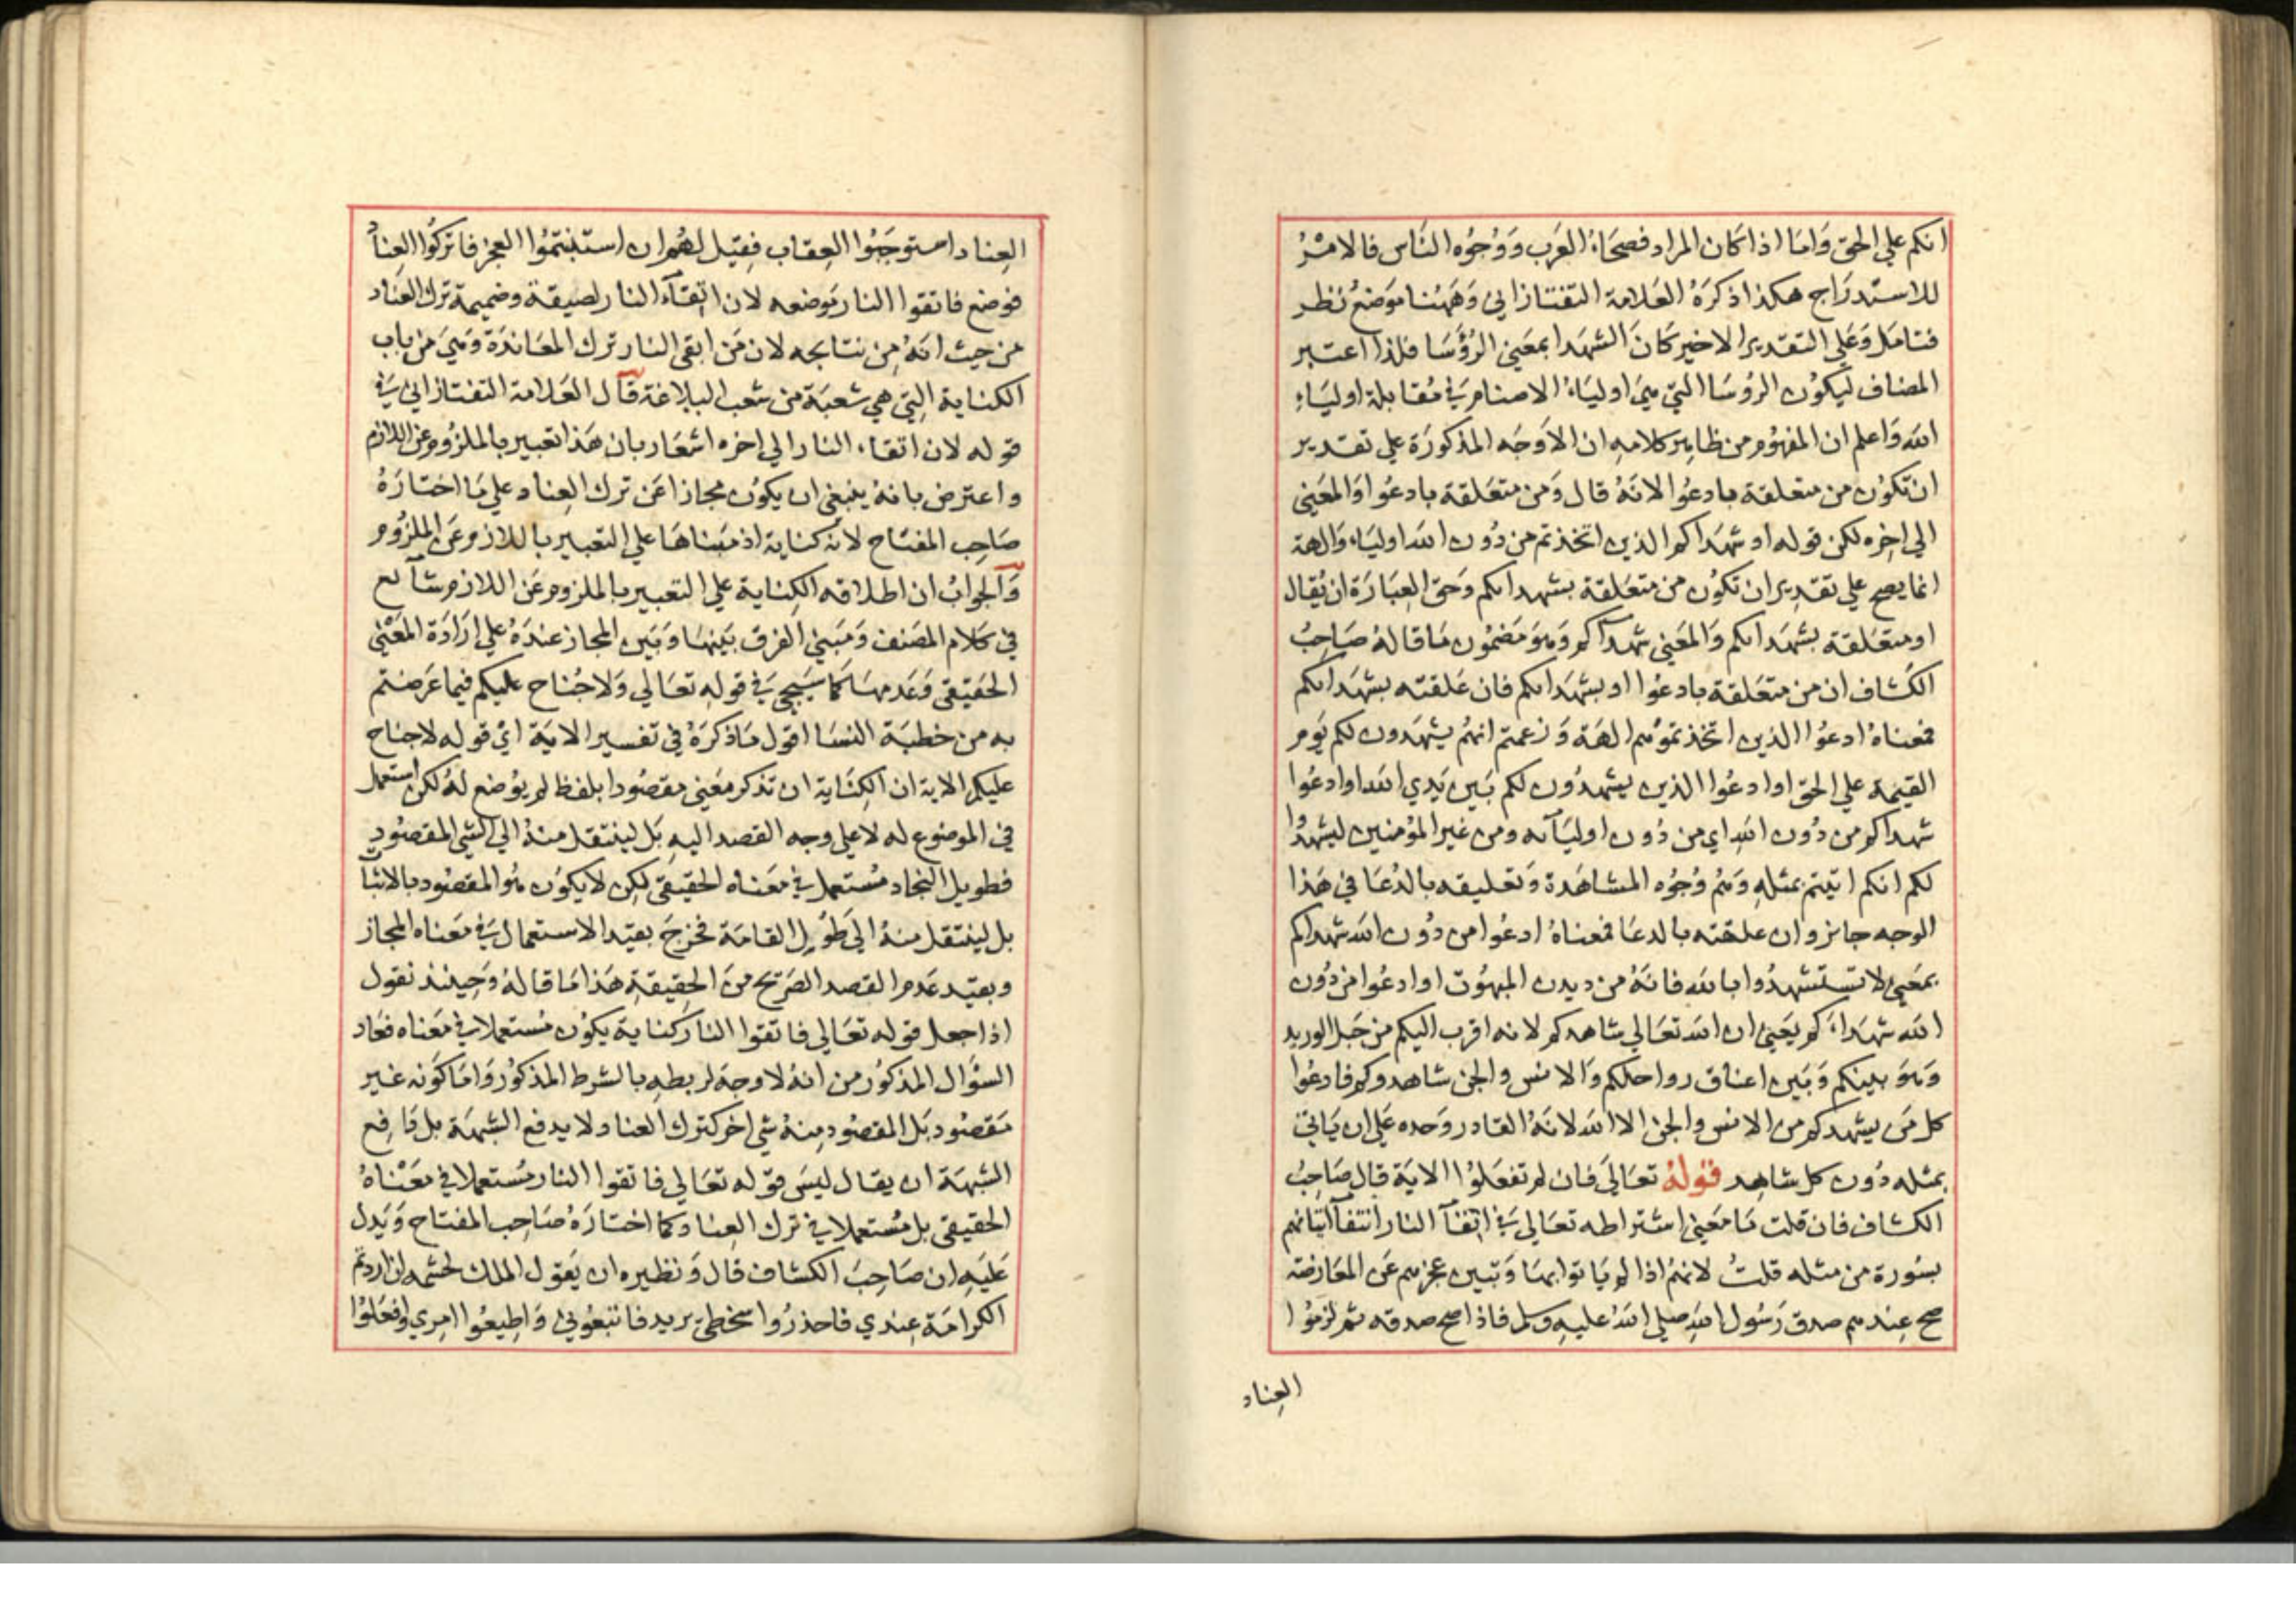 انكم علي الحق وَامَا اذا كان المراد فصحَاءُ العَرب وَوُجُوُه النَاس فالامْرُ
للاستدرَاج هكذا ذكرَهُ العَلامة التفتازاني وَهَهُنا موَضعُ نظر
فتامَل وَعَلي التقدير الاخير كانَ الشهدا بمعَني الرُؤَسَا فلذا اعتبر
المضاف ليكوُن الروُسَا التي هيَ اوليَاءُ الاصنام يَفي مُقابلة اوليَاءِ
الله وَاعلم ان المفهوُم من ظاهِر كلامهِ ان الاَوجَه المذكورَة علي تقدير
ان تكوُن من متعلقة بادعُوا لانهُ قال وَمن متعَلقة بادعُوا وَالمعَني
الي اخِره لكن قوله او شهدَاكم الذين اتخذتم من دُون الله اوليَاء وَالهة
انما يصح علي تقدِير ان تكوُن من متعَلقة بشهداىكم وَحق العِبَارَة ان يُقال
او متعَلقة بشهَداىكم وَالمعَني شهدآكم وَهوَ مَضموُن مَا قالهُ صَاحِبُ
الكشاف ان من متعَلقة بادعوُا او بشهَداىكم فان عَلقته بشهَداىكم
فمعناهُ ادعوُا الذين اتخذتموُهم الهَة وَزعمتم انهُم يشهَدون لكم يَوم
القيمة علي الحق او ادعُوا الذين يشهدُون لكم بَين يَدي الله او ادعُوا
شهداكم من دُون الله اي من دُون اوليَآئه ومن غير المؤمنين ليشهدُوا
لكم انكم اتيتم بمثلهِ وَهُم وُجُوُه المشاهَدة وَتعليقه بالدُعَا في هَذا
الوجه جايز وان علقته بالدعَا فمعناهُ ادعُوا من دوُن الله شهداكم
بمعَني لا تستشهدُوا بالله فانهُ من ديدن المبهوُت او ادعُوا من دُون
الله شهدَاءَكم يعَني ان الله تعَالي شاهدكم لانه اقرب اليكم من حَبل الوريد
وَهوَ بينكم وَبَين اعناق رواحلكم وَالانس والجن شاهدوكم فادعُوا
كل مَن يشهدكم من الانس والجن الا الله لانَهُ القادر وَحده عَلي ان يَاتي
بمثله دُون كل شاهِد قولهُ تعَالَي فان لم تفعَلوُا الايَة قال صَاحِبُ
الكشاف فان قلت مَا معَني اشتراطه تعَالي يَفي اتِقآ النار انتفآ اتيانهم
بسُورة من مثله قلتُ لانهُم اذا لم يَاتوا بهَا وَتبيَن عجزهم عَن المعَارضة
صح عِندهم صدق رَسُول اللهِ صلي اللهُ عليهِ وسلم فاذا صح صدقه ثم لزموُا
العِناد
العِناد استوجَبُوا العِقاب فقِيل لهُم ان استبنتمُوا العجز فاتركُوا العِنادُ
فوضع فاتقوا النار مَوضعه لان اتِقآء النار لصيقة وضميمة ترك العنَاد
من حيث انهُ مِن نتايجه لان مَن اتقي النار ترك المعَاندَة وَهيَ من باب
الكناية التِي هي شعبَة من شعب البلاغة قال العَلامة التفتازاني يَفي
قوله لان اتقاء النار الي اخره اشعَار بان هَذا تعبير بالملزُوم عن اللازم
واعترض بانهُ ينبغي ان يكوُن مجازا عَن ترك العِناد علي مَا اختارَهُ
صَاحِب المفتاح لان كناية اذ مَبناهَا علي التعبير باللازم عَن الملزُوم
وَالجوابُ ان اطلاقه الكِناية علي التعبير بالملزوم عَن اللازم شآئع
في كلام المصَنف وَمَبني الفرق بَينهَا وَبَين المجاز عندَهُ علي ارَادَة المعَنْي
الحقيقي وَعَدمهَا كما سَيجي يَفي قوله تعَالي وَلا جُناح عليكم فيما عَرضتم
به من خطبَة النسَا اقول مَا ذكرَهُ في تفسير الايَة ايُ قوله لا جناح
عليكم الاية ان الكِنَاية ان تذكر مَعني مقصُودا بلفظ لم يُوضع لهُ لكن استعمل
في الموضوع له لا علي وجه القصد اليهِ بَل لينتقل منهُ الي الشي المقصُودِ
فطويل النجاد مُستعمل يفي معَناه الحقيقي لكِن لا يكوُن هُو المقصُود بالاثبآ
بل لينتقل منهُ الي طوُيل القامَة فخرجَ بقيَد الاستعمال يَفي مَعناه المجاز
وبقيَد عَدم القصد الصَريح منَ الحقِيقةِ هَذا مَا قالهُ وَحِينئذ نقول
اذا جعل قوله تعَالي فاتقوا النار كناية يكوُن مُستعملا في مَعناه فعَاد
السؤَال المذكوُر من انهُ لا وجهَ لربطهِ بالشرط المذكوُر وَامَا كوَنه غير
مَقصُود بَل المقصُود مِنهُ شي اخر كترك العناد لا يدفع الشبهَة بل دَافع
الشبَهة ان يقال ليسَ قوله تعَالي فاتقوا النار مُستعملا في معَنْاهُ
الحقيقي بل مُستعملا في ترك العِناد كما اختارَهُ صَاحِب المفتاح وَيَدل
عَليَهِ ان صَاحِبَ الكشاف قال وَنظيره ان يَقول الملك لحشمه ان اردتم
الكرامَة عِندي فاحذرُوا سخطي يريد فاتبعُوني وَاطِيعُوا امِري وافعَلوُا